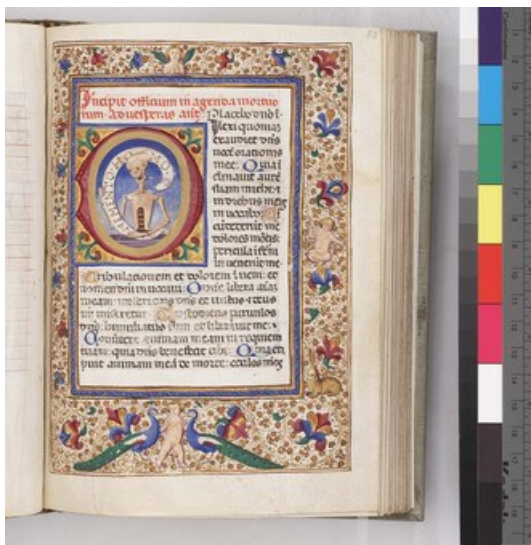 Incipit officium in agenda mortuo
rum. Ad vesperas añ. Placebo dño.
Dilexi quoniaz
exaudiet dñs
vocē orationis
mee. Quia ī
clinavit aurē
suam michi: ⁊
in diebus meis
invocabo. Cir
cūdederūt me
dolores mortis:
pericula īferni
invenerūt me.
Tribulationem et dolorem īveni: et
nomen dñi invocavi. O dñe libera aiaz
meam: misericors dñs et iustus: et deus
nr miseretur. Custodiens parvulos
dñs: humiliatus sum et liberavit me.
Convertere animam meam in requiem
tuam: quia dñs benefecit tibi. Quia eri
puit animam meā de morte: oculos meos
Kodak